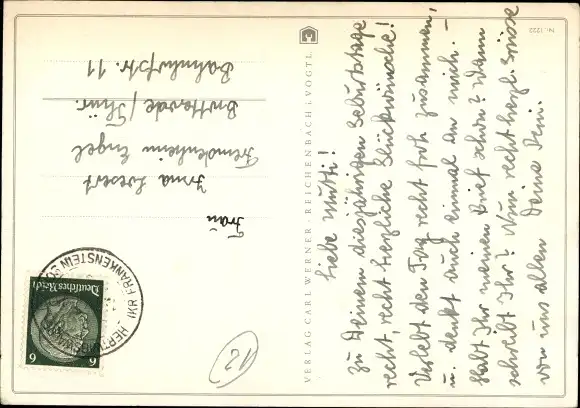 Liebe Mutti!
Zu Deinem diesjährigen Geburtstage
recht, recht herzliche Glückwünsche!
Verlebt den Tag recht froh zusammen,
u. denkt auch einmal an mich. –
Habt Ihr meinen Brief schon? Wann
schreibt Ihr? Nun recht herzl. Grüsse
von uns allen Deine
Nr. 1222
VERLAG CARL WERNER · REICHENBACH I. VOGTL.
Frau
Irma
Fremdenheim Engel
Brotterode / Thür.
Bahnhofstr. 11
Deutsches Reich
6 6
FRANKENSTEIN
12